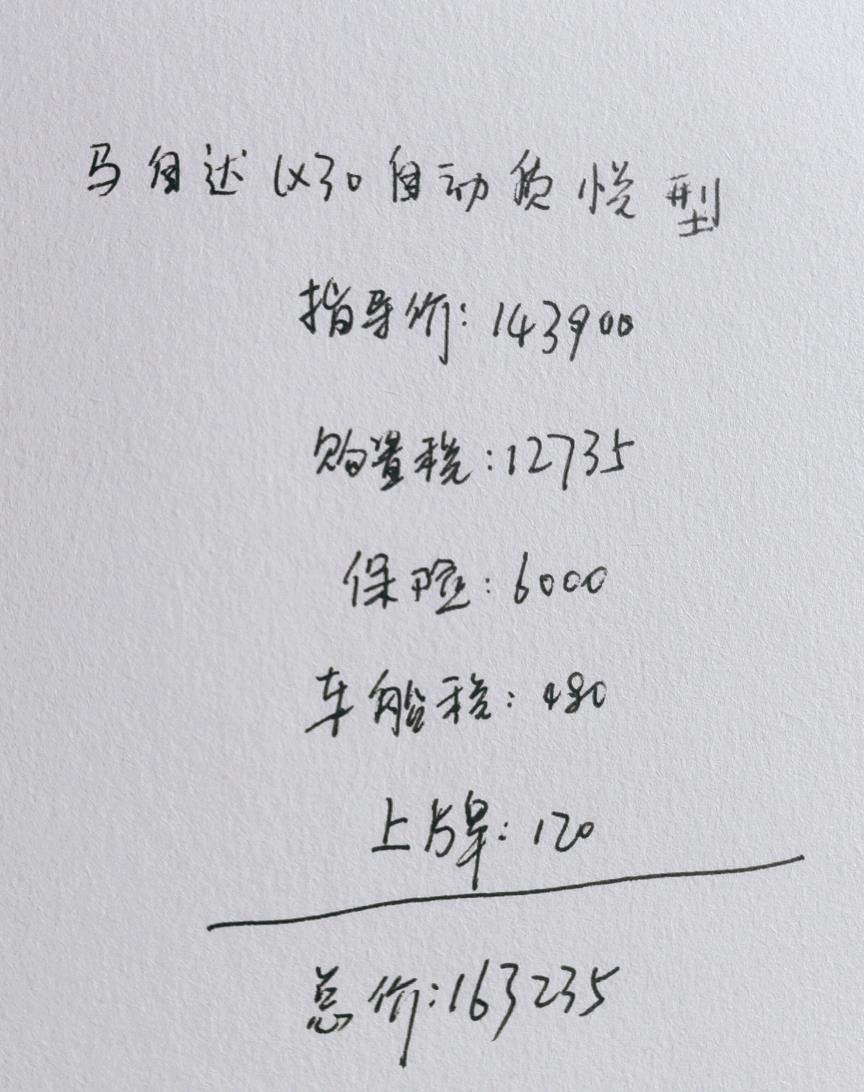 马自达CX30自动质悦型
指导价:143900
购置税:12735
保险:6000
车船税:480
上牌:120
总价:163235